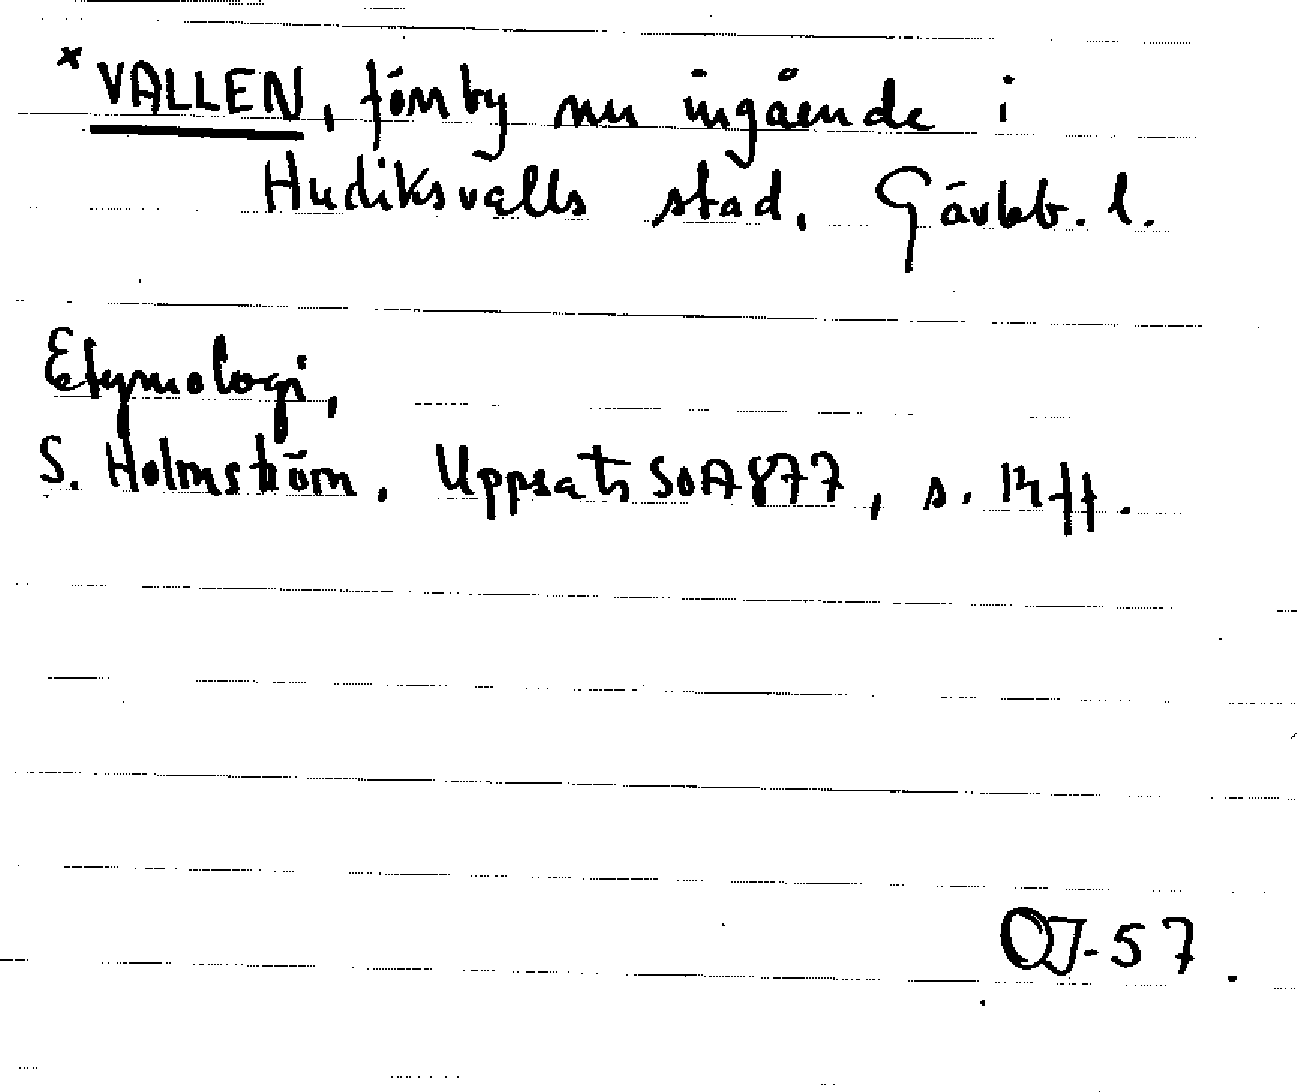 * VALLEN, förnby nu ingående i
Hudiksvalls stad. Gävleb. l.
Etymologi,
S. Holmström. Uppsats SOA 877, s. 14 ff.
OJ-57.